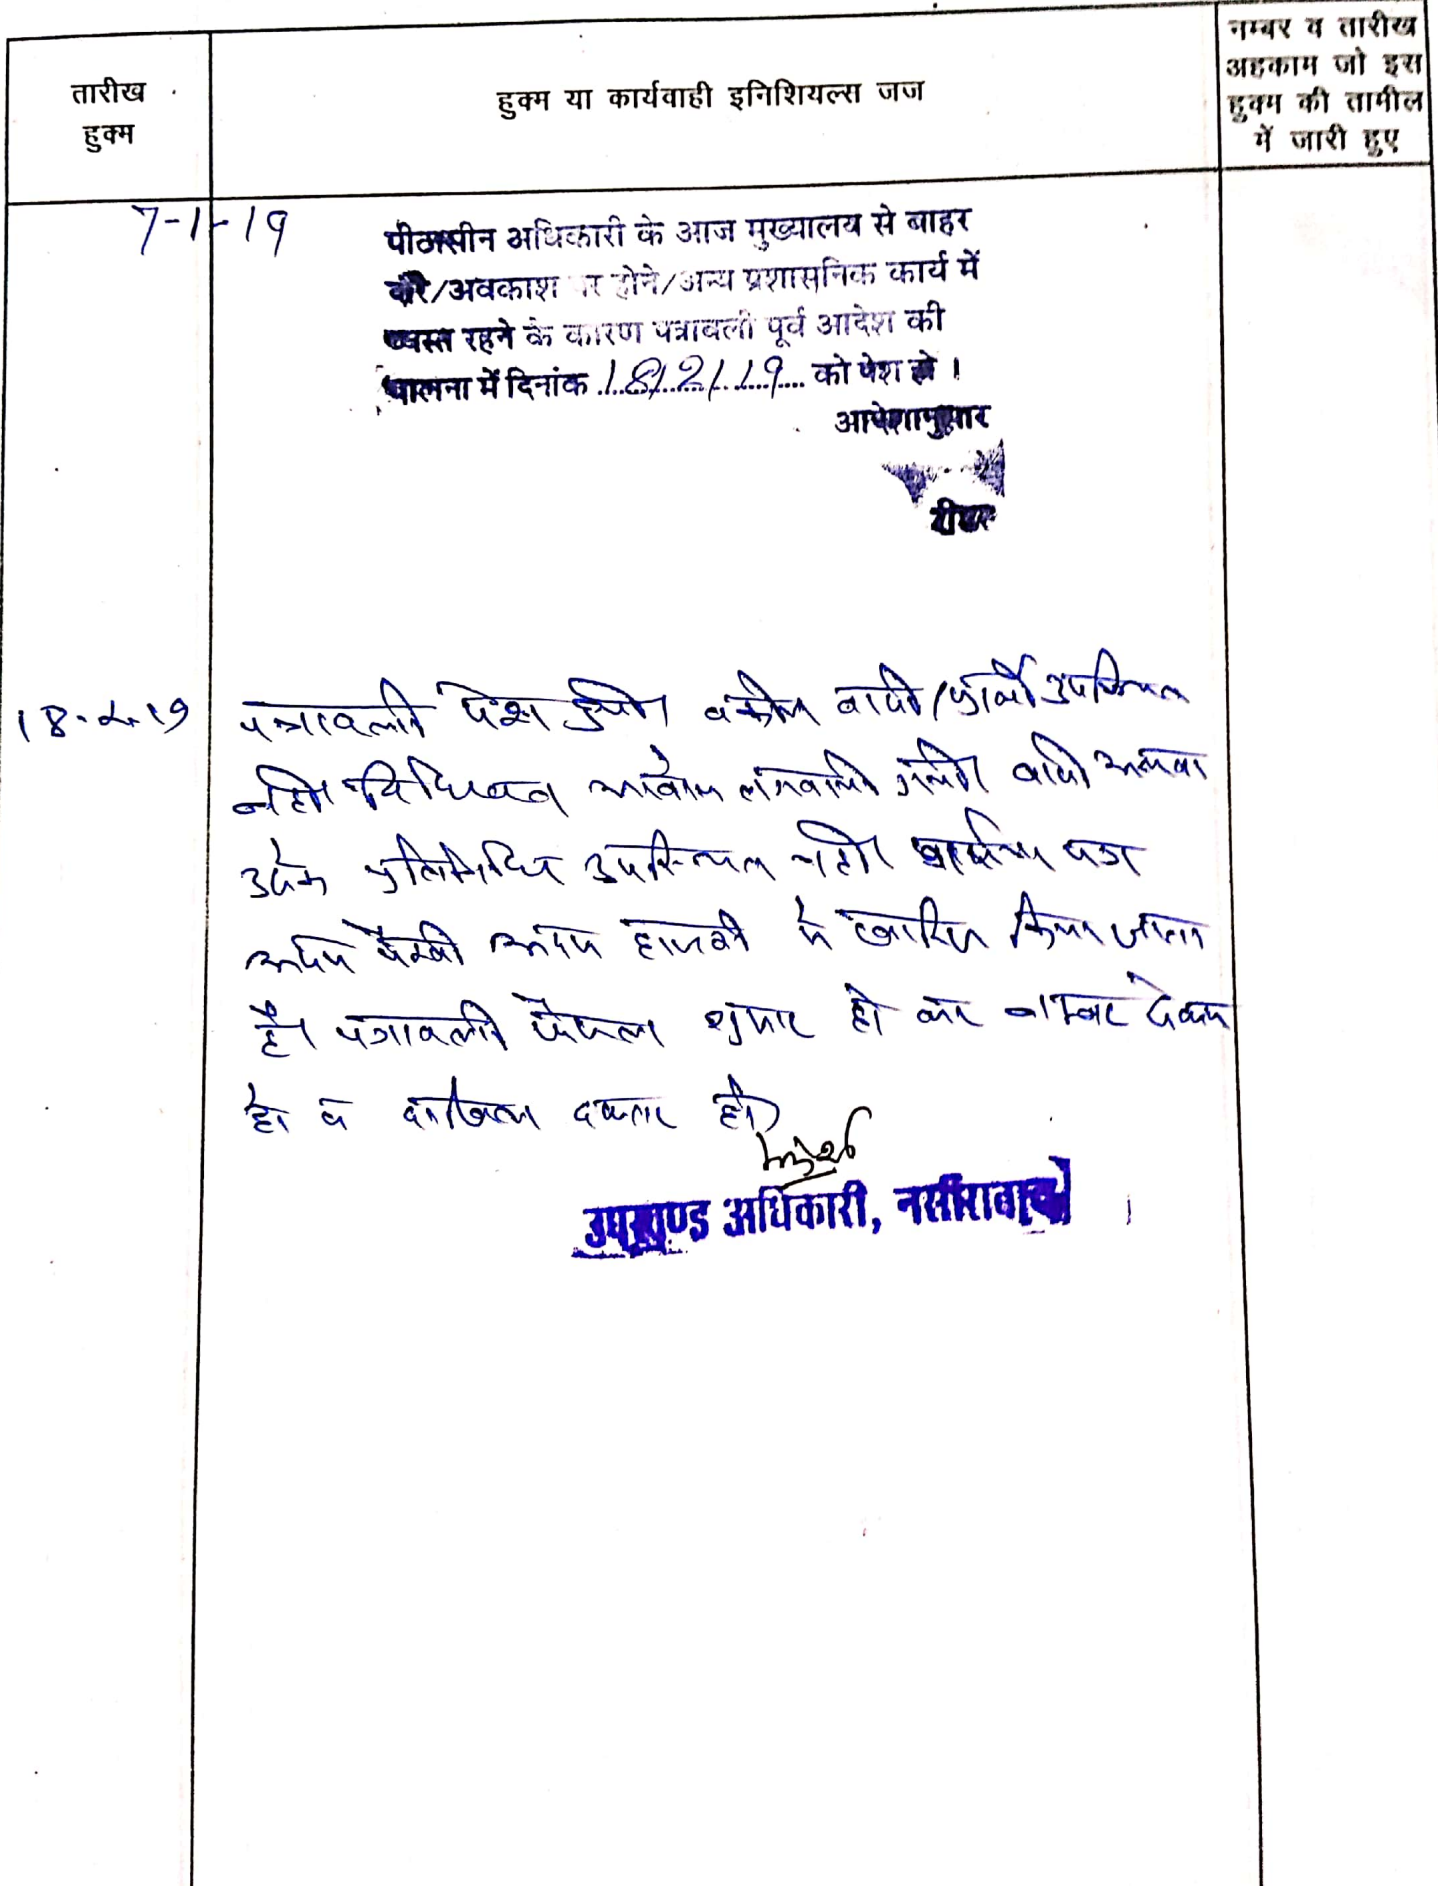 तारीख
हुक्म
हुक्म या कार्यवाही इनिशियल्स जज
नम्बर व तारीख
अहकाम जो इस
हुक्म की तामील
में जारी हुए
7-1-19
पीठासीन अधिकारी के आज मुख्यालय से बाहर
दौरे/अवकाश पर होने/अन्य प्रशासनिक कार्य में
व्यस्त रहने के कारण पत्रावली पूर्व आदेश की
पालना में दिनांक 18/2/19 को पेश हो ।
आदेशानुसार
रीडर
18-2-19
पत्रावली पेश हुयी। वकील वादी/प्रार्थी उपस्थित
नही। विधिवत आवाज लगवायी गयी। वादी अथवा
उनके प्रतिनिधि उपस्थित नही। प्रार्थना पत्र
अदम पैरवी अदम हाजरी मे खारिज किया जाता
है। पत्रावली फैसल शुमार हो कर नम्बर से कम
हो व दाखिल दफ्तर हो।
उपखण्ड अधिकारी, नसीराबाद